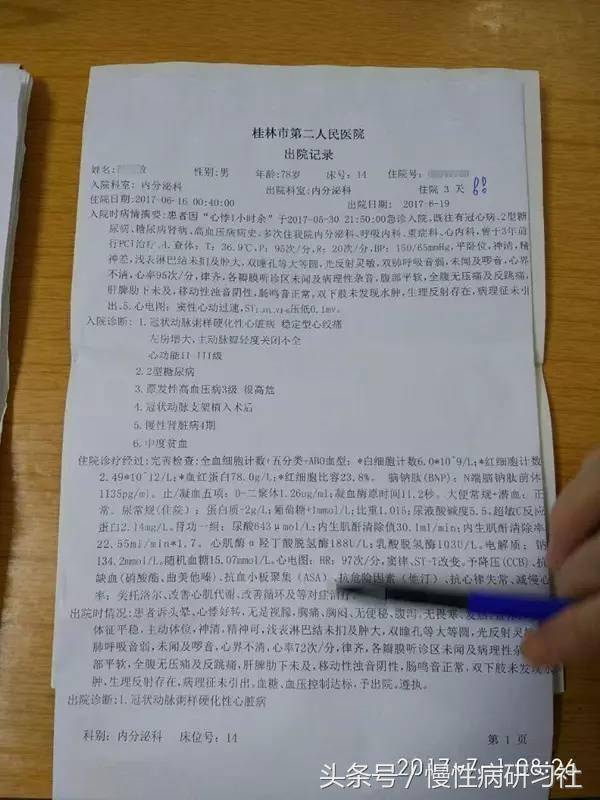 桂林市第二人民医院
出院记录
姓名: 性别:男 年龄:78岁 床号:14 住院号:
入院科室:内分泌科 出院科室:内分泌科 住院 3 天
住院日期:2017-06-16 00:40:00 出院日期: 2017-6-19
入院时病情摘要:患者因"心悸1小时余"于2017-05-30 21:50:00急诊入院,既往有冠心病、2型糖
尿病、糖尿病肾病、高血压病病史,多次住我院内分泌科、呼吸内科、重症科、心内科,曾于3年前
行PCI治疗。4.查体:T:36.9℃,P:95次/分,R:20次/分,BP:150/65mmHg,平卧位,神清,精
神差,浅表淋巴结未扪及肿大,双瞳孔等大等圆,光反射灵敏,双肺呼吸音弱,未闻及啰音,心界
不清,心率95次/分,律齐,各瓣膜听诊区未闻及病理性杂音,腹部平软,全腹无压痛及反跳痛,
肝脾肋下未及,移动性浊音阴性,肠鸣音正常,双下肢未发现水肿,生理反射存在,病理征未引
出。5.心电图:窦性心动过速,压低0.1mv。
入院诊断:1.冠状动脉粥样硬化性心脏病 稳定型心绞痛
左房增大,主动脉瓣轻度关闭不全
心功能II-III级
2.2型糖尿病
3.原发性高血压病3级 很高危
4.冠状动脉支架植入术后
5.慢性肾脏病4期
6.中度贫血
住院诊疗经过:完善检查:全血细胞计数+五分类+ABO血型:*白细胞计数6.0*10^9/L;*红细胞计数
2.49*10^12/L;*血红蛋白78.0g/L;*红细胞比容23.8%。 脑钠肽(BNP):N端脑钠肽前体
1135pg/ml。止/凝血五项:D-二聚体1.26ug/ml;凝血酶原时间11.2秒。大便常规+潜血:正
常。尿常规(住院):蛋白质-2g/L;葡萄糖+1mmol/L;比重1.015;尿液酸碱度5.5。超敏C反应
蛋白2.14mg/L。肾功一组:尿酸643μmol/L;内生肌酐清除值30.1ml/min;内生肌酐清除率
22.55ml/min*1.7。心肌酶α羟丁酸脱氢酶188U/L;乳酸脱氢酶103U/L。电解质:钠
134.2mmol/L。随机血糖15.07mmol/L。心电图:HR:97次/分,窦律、ST-T改变。予降压(CCB)、抗
缺血(硝酸酯、曲美他嗪)、抗血小板聚集(ASA)、抗危险因素(他汀)、抗心律失常、减慢心
率:美托洛尔、改善心肌代谢、改善循环及等对症治疗。
出院时情况:患者诉头晕,心悸好转,无是视朦,胸痛、胸闷、无便秘、腹泻,无畏寒、发
体征平稳,主动体位,神清,精神可,浅表淋巴结未扪及肿大,双瞳孔等大等圆,光反射灵
肺呼吸音弱,未闻及啰音,心界不清,心率72次/分,律齐,各瓣膜听诊区未闻及病理性杂
部平软,全腹无压痛及反跳痛,肝脾肋下未及,移动性浊音阴性,肠鸣音正常,双下肢未发现水
肿,生理反射存在,病理征未引出,血糖、血压控制达标,予出院,遵执。
出院诊断:1.冠状动脉粥样硬化性心脏病
科别:内分泌科 床位号:14 第 1 页
2017-7-1 08:26
头条号/慢性病研习社